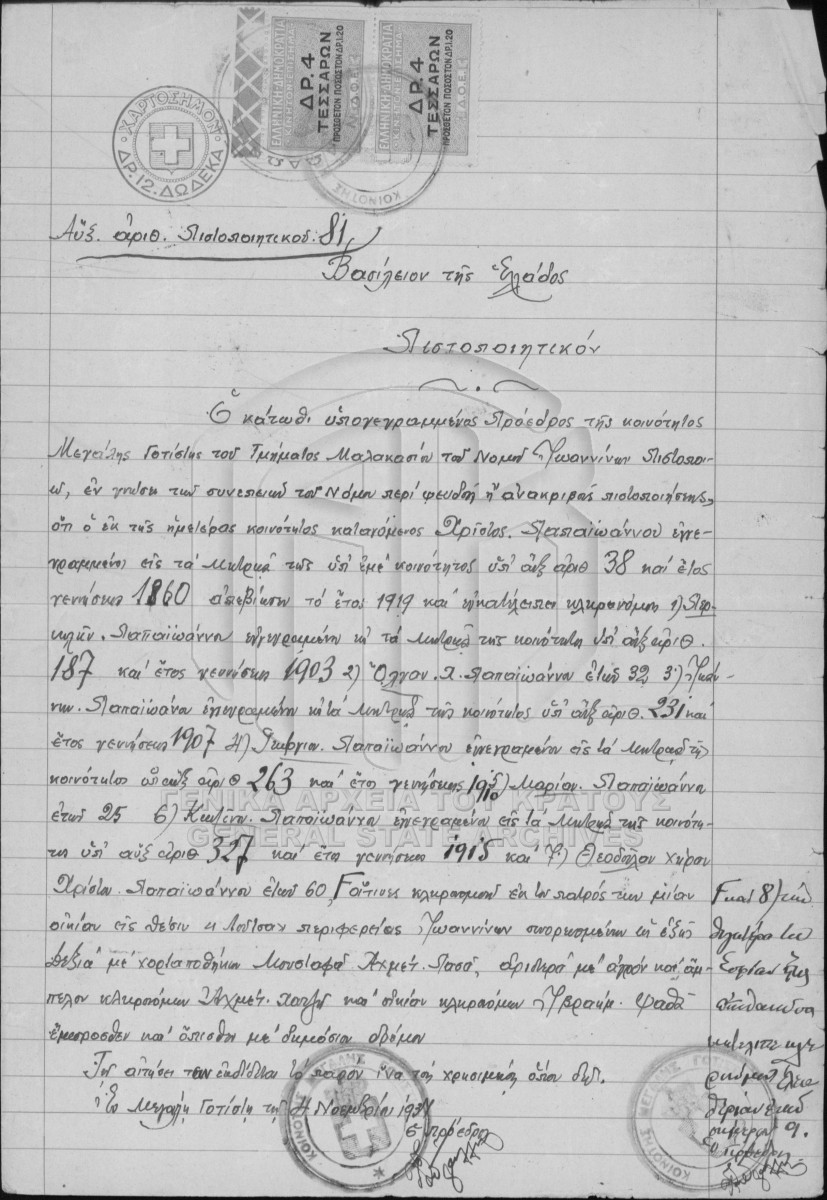 ΕΛΛΗΝΙΚΗ ΔΗΜΟΚΡΑΤΙΑ
ΔΡ. 4
ΤΕΣΣΑΡΩΝ
ΠΡΟΣΘΕΤΟΝ ΠΟΣΟΣΤΟΝ ΔΡ. 1.20
ΕΛΛΗΝΙΚΗ ΔΗΜΟΚΡΑΤΙΑ
ΔΡ. 4
ΤΕΣΣΑΡΩΝ
ΠΡΟΣΘΕΤΟΝ ΠΟΣΟΣΤΟΝ ΔΡ. 1.20
ΧΑΡΤΟΣΗΜΟΝ
ΔΡ. 12. ΔΩΔΕΚΑ
ΚΟΙΝΟΤΗΣ
Αὔξ. ἀριθ. Πιστοποιητικοῦ 81
Βασίλειον τῆς Ἑλλάδος
Πιστοποιητικόν
Ὁ κάτωθι ὑπογεγραμμένος Πρόεδρος τῆς κοινότητος
Μεγάλης Γοτίστης τοῦ Τμήματος Μαλακασίου τοῦ Νομοῦ Ἰωαννίνων Πιστοποι-
ῶ, ἐν γνώσει τῶν συνεπειῶν τοῦ Νόμου περί ψευδοῦς ἤ ἀνακριβοῦς πιστοποιήσεως,
ὅτι ὁ ἐκ τῆς ἡμετέρας κοινότητος καταγόμενος Χρῖστος. Παπαϊωάννου ἐγγε-
γραμμένος εἰς τά Μητρῶα τῆς ὑπ' ἐμέ κοινότητος ὑπ' αὔξ ἀριθ 38 καί ἔτος
γεννήσεως 1860 ἀπεβίωσεν τό ἔτος 1919 καί ἐγκατέλειπεν κληρονόμους 1) Περ-
κλῆν. Παπαϊωάννου ἐγγεγραμμένον εἰς τά Μητρῶα τῆς κοινότητος ὑπ' αὔξ ἀριθ.
187 καί ἔτος γεννήσεως 1903 2) Ὄλγαν. Χ. Παπαϊωάννου ἐτῶν 32 3) Ἰωάν-
νην. Παπαϊωάνου ἐγγεγραμένον εἰς τά Μητρῶα τῆς κοινότητος ὑπ' αὔξ ἀριθ. 231 καί
ἔτος γεννήσεως 1907 4) Γεώργιον. Παπαϊωάννου ἐγγεγραμένον εἰς τά Μητρῶα τῆς
κοινότητος ὑπ' αὔξ ἀριθ 263 καί ἔτος γεννήσεως 1910 5) Μαρίαν. Παπαϊωάννου
ἐτῶν 25 6) Κωστ. Παπαϊωάννου ἐγγεγραμένον εἰς τά Μητρῶα τῆς κοινότη-
τος ὑπ' αὔξ ἀριθ 327 καί ἔτος γεννήσεως 1915 καί 7) Θεοδούλαν χήραν
Χρίστου. Παπαϊωάννου ἐτῶν 60, οἵτινες κληρονομοῦν ἐκ τοῦ πατρός των μίαν
οἰκίαν εἰς θέσιν περιφερείας Ἰωαννίνων συνορευομένην ὡς ἑξῆς
Δεξιά μέ χορταποθήκην Μουσταφᾶ Ἀχμέτ. Πασᾶ, ἀριστερά μέ ἀγρόν καί ἄμ-
πελον κληρονόμων Ἀχμέτ. καί οἰκίαν κληρονόμων Ἰβραήμ.
ἔμπροσθεν καί ὄπισθεν μέ δημόσιον δρόμον
Τῇ αἰτήσει των ἐκδίδεται τό παρόν ἵνα τοῖς χρησιμεύσῃ ὅπου δεῖ.
Ἐν Μεγάλῃ Γοτίστῃ τῇ 4 Νοεμβρίου 193
Ὁ Πρόεδρος
καί 8) τήν
θυγατέρα του
ἥτις
ἀποθανοῦσα
σήμερον
Ὁ Πρόεδρος
ΚΟΙΝΟΤΗΣ ΜΕΓΑΛΗΣ ΓΟΤΙΣΤΗΣ
ΚΟΙΝΟΤΗΣ ΜΕΓΑΛΗΣ ΓΟΤΙΣΤΗΣ
ΓΕΝΙΚΑ ΑΡΧΕΙΑ ΤΟΥ ΚΡΑΤΟΥΣ
GENERAL STATE ARCHIVES